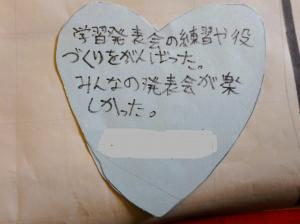 学習発表会の練習や役
づくりをがんばった。
みんなの発表会が楽
しかった。